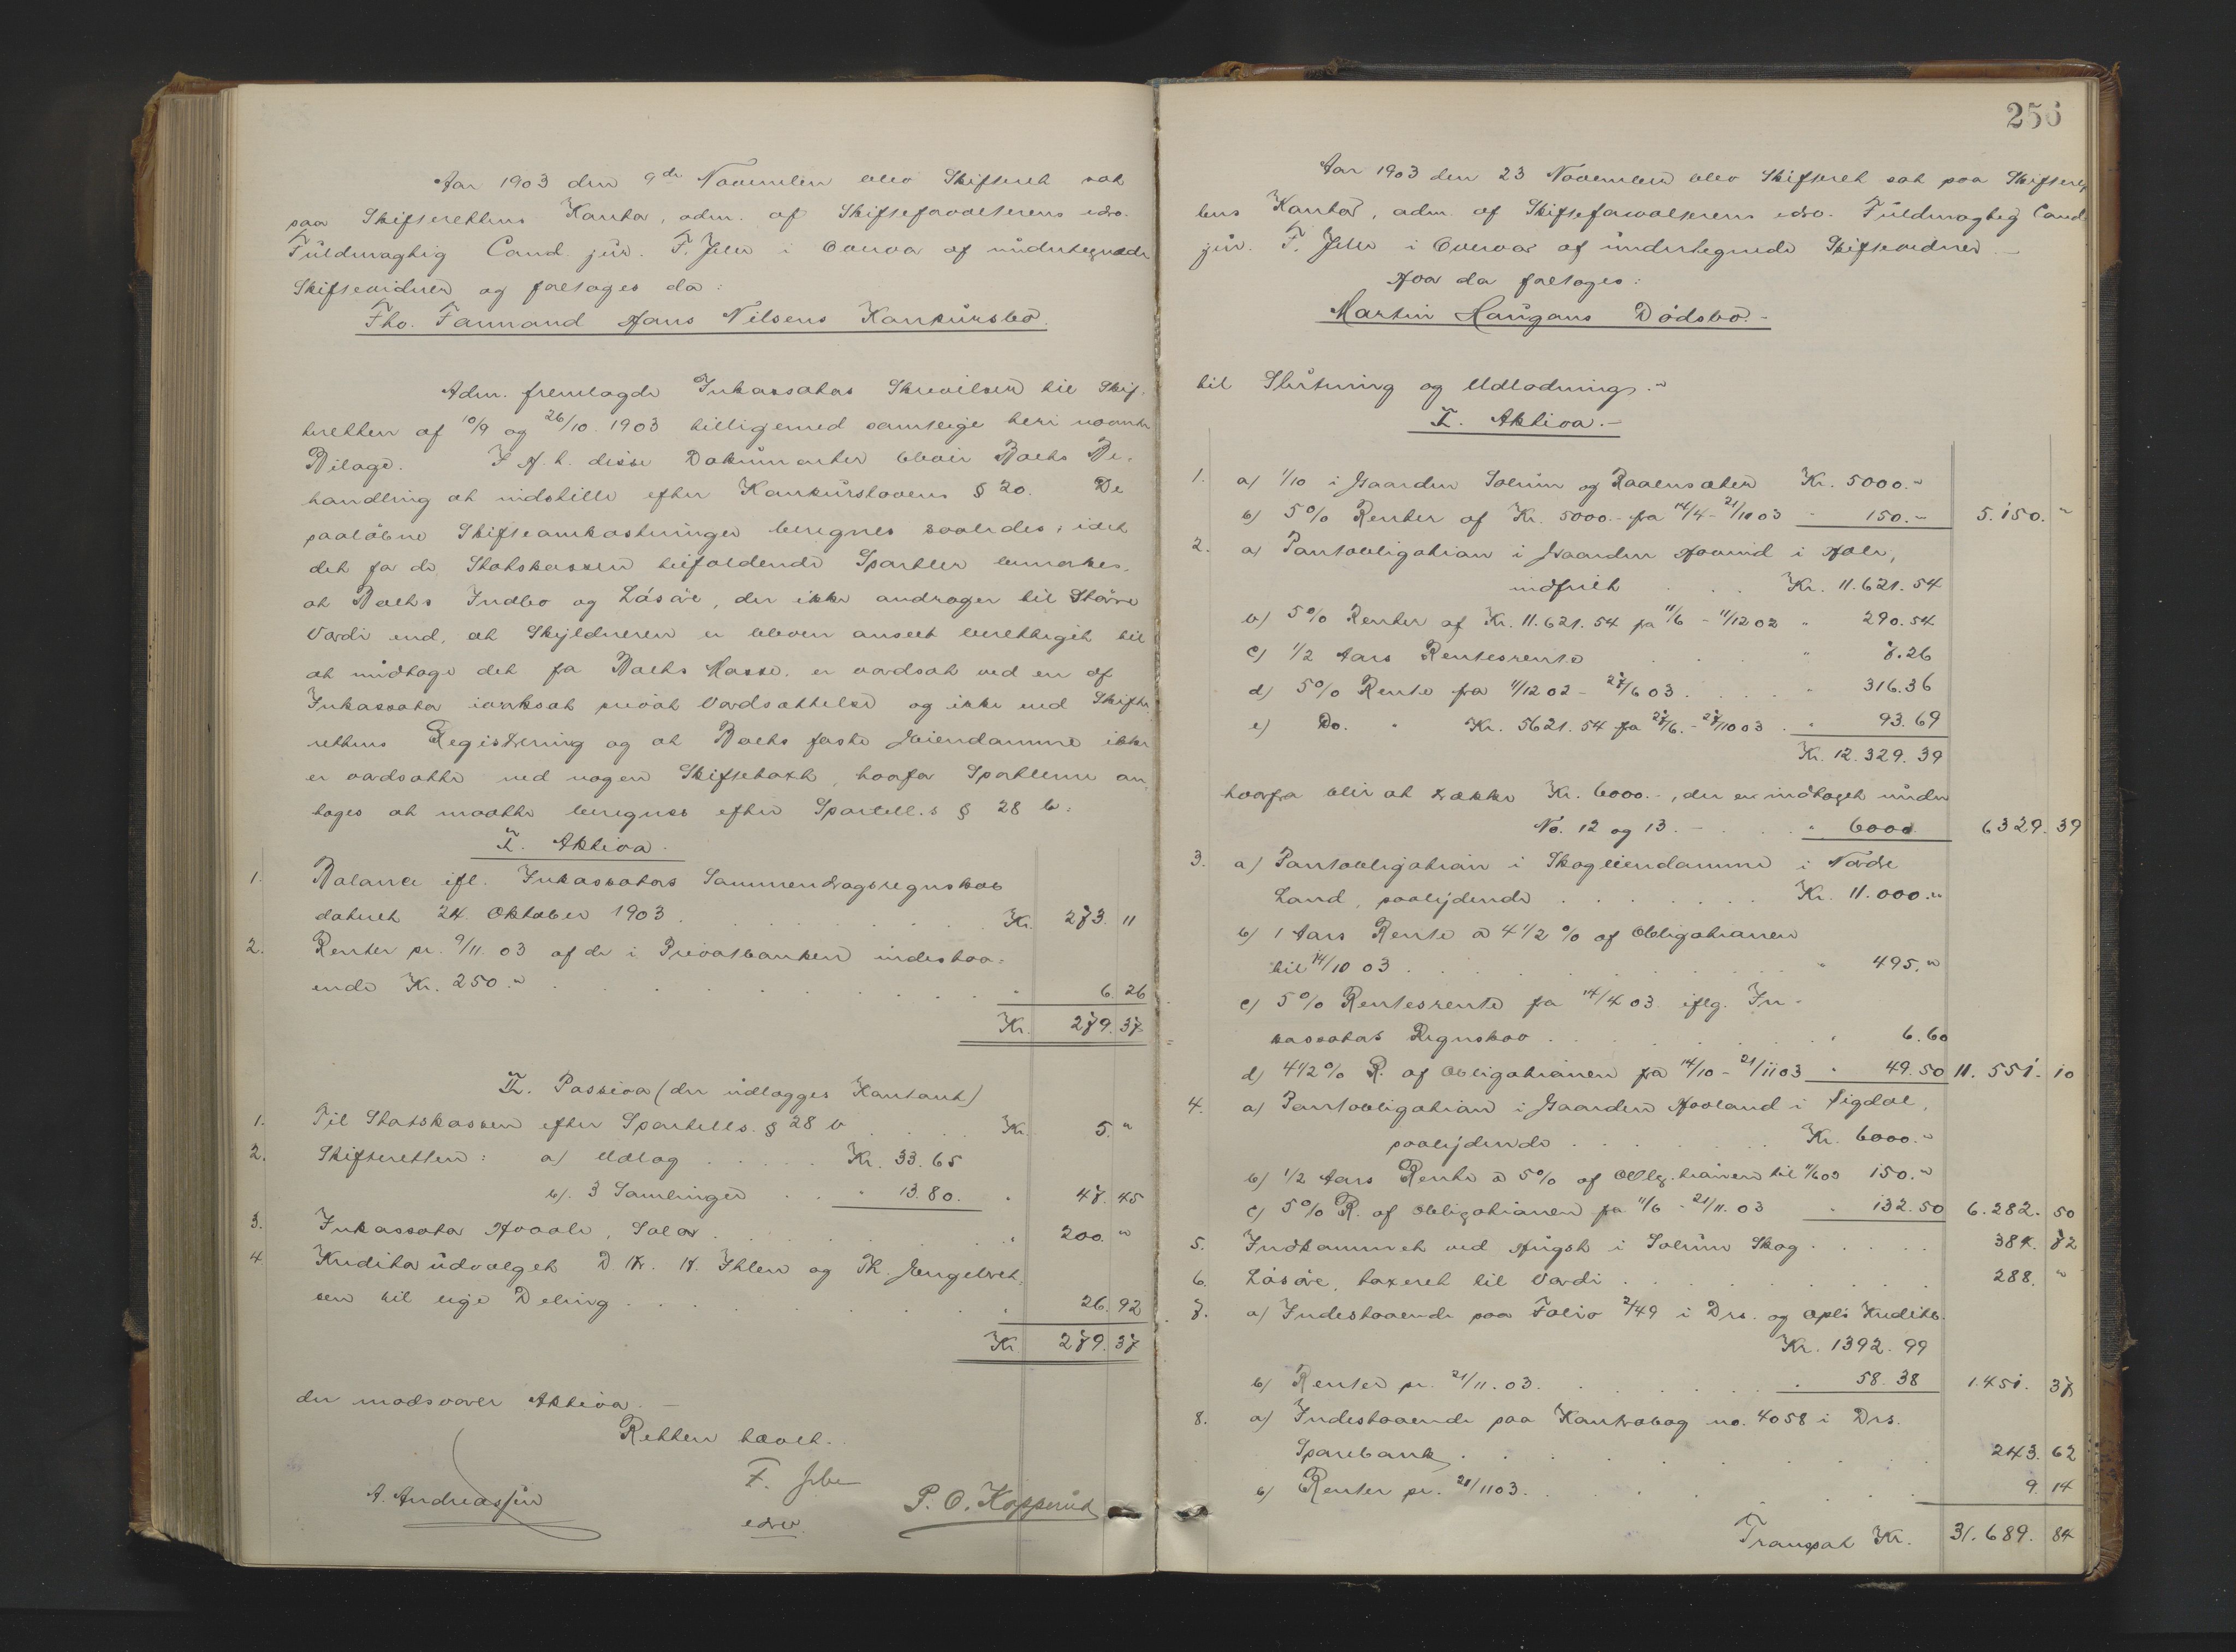 Aar 1903 den 9de November blev Skifteret sat
paa Skifterettens Kontor, adm. af Skifteforvalterens edsv.
Fuldmægtig Cand. jur. F. i Overvær af undertegnede
Skiftevidner og foretoges da:
Fhv. Formand Hans Nilsens Konkursbo.
Adm. fremlagde Inkassators Skrivelser til Skif-
teretten af 10/9 og 26/10 1903 tilligemed samtlige heri nævnte
Bilage. I H. t. disse Dokumenter bliver Boets Be-
handling at indstille efter Konkurslovens § 20. De
paaløbne Skifteomkostninger beregnes saaledes, idet
det for de Statskassen tilfaldende Sportler bemærkes,
at Boets Indbo og Løsøre, der ikke andrager til større
Værdi end, at Skyldneren er bleven anseet berettiget til
at undtage det fra Boets Masse, er værdsat ved en af
Inkassator iværksat privat Værdsættelse og ikke ved Skifte-
rettens Registrering og at Boets faste Eiendomme ikke
er værdsatte ved nogen Skiftetaxt, hvorfor Sportlerne an-
tages at maatte beregnes efter Sportell.s § 28 b:
I. Aktiva.
1. Balance ifl. Inkassators Sammendragsregnskab
dateret 24. Oktober 1903 . . . Kr. 273. 11
2. Renter pr. 9/11. 03 af de i Privatbanken indestaa-
ende Kr. 250.- . . . " 6. 26
Kr. 279. 37
II. Passiva (der udlægges kontant)
1. Til Statskassen efter Sportells. § 28 b . . . Kr. 5. "
2. Skifteretten: a) Udlæg . . . Kr. 33. 65
b). 3 Samlinger . . " 13. 80. " 47. 45
3. Inkassator Hvaale, Salær . . . " 200. "
4. Kreditorudvalget D Hr. H. Ihlen og Th. Engebret-
sen til lige Deling . . . " 26. 92
Kr. 279. 37
der modsvarer Aktiva. —
Retten hævet.
F.
A. Andreassen
edsv.
P. O. Kopperud
256
Aar 1903 den 23 November blev Skifteret sat paa Skifteret-
tens Kontor, adm. af Skifteforvalterens edsv. Fuldmægtig Cand.
jur. F. i Overvær af undertegnede Skiftevidner. —
Hvor da foretoges:
Martin Haugans Dødsbo. -
til Slutning og Udlodning. -
I. Aktiva. -
1. a) 1/10 i Gaarden Solum og Kr. 5000. -
b) 5% Renter af Kr. 5000.- fra 14/4 - 21/11 03 " 150. - 5. 150. "
2. a) Pantobligation i Gaarden i Hole,
indfriet . . . Kr. 11. 621. 54
b) 5% Renter af Kr. 11. 621. 54 fra 11/6 - 11/12 02 " 290. 54
c) 1/2 Aars Rentesrente . . . " 7. 26
d) 5% Rente fra 11/12 02 - 27/6 03 . . . " 316. 36
e) Do. " Kr. 5621. 54 fra 27/6. - 27/10 03 . " 93. 69
Kr. 12. 329. 39
hvorfra blir at trække Kr. 6000.-, der er indtaget under
No. 12 og 13. - . . . " 6000. 6329. 39
3. a) Pantobligation i Skogeiendomme i Nordre
Land, paalydende . . . Kr. 11. 000. "
b) 1 Aars Rente à 4 1/2 % af Obligationen
til 14/10 03 . . . " 495. "
c) 5% Rentesrente fra 14/4 03 iflg. In-
kassators Regnskab . . . " 6. 60
d) 4 1/2 % R. af Obligationen fra 14/10 - 21/11 03 " 49. 50 11. 551. 10
4. a) Pantobligation i Gaarden Hovland i Sigdal,
paalydende . . . Kr. 6000. "
b) 1/2 Aars Rente à 5% af Oblig.tionen til 11/6 03 150. "
c) 5% R. af Obligationen fra 11/6 - 21/11. 03 " 132. 50 6. 282. 50
5. Indkommet ved Hugst i Solum Skog . . . 384. 72
6. Løsøre, taxeret til Værdi . . . 288. "
7. a) Indestaaende paa Folio 2/49 i Drs. og Opl's Kreditb.
Kr. 1392. 99
b) Renter pr. 21/11. 03. . . . " 58. 38 1. 451. 37
8. a) Indestaaende paa Kontrabog no. 4058 i Drs.
Sparebank . . . 243. 62
b) Renter pr. 21/11 03. . . . 9. 14
Transport Kr. 31. 689. 84